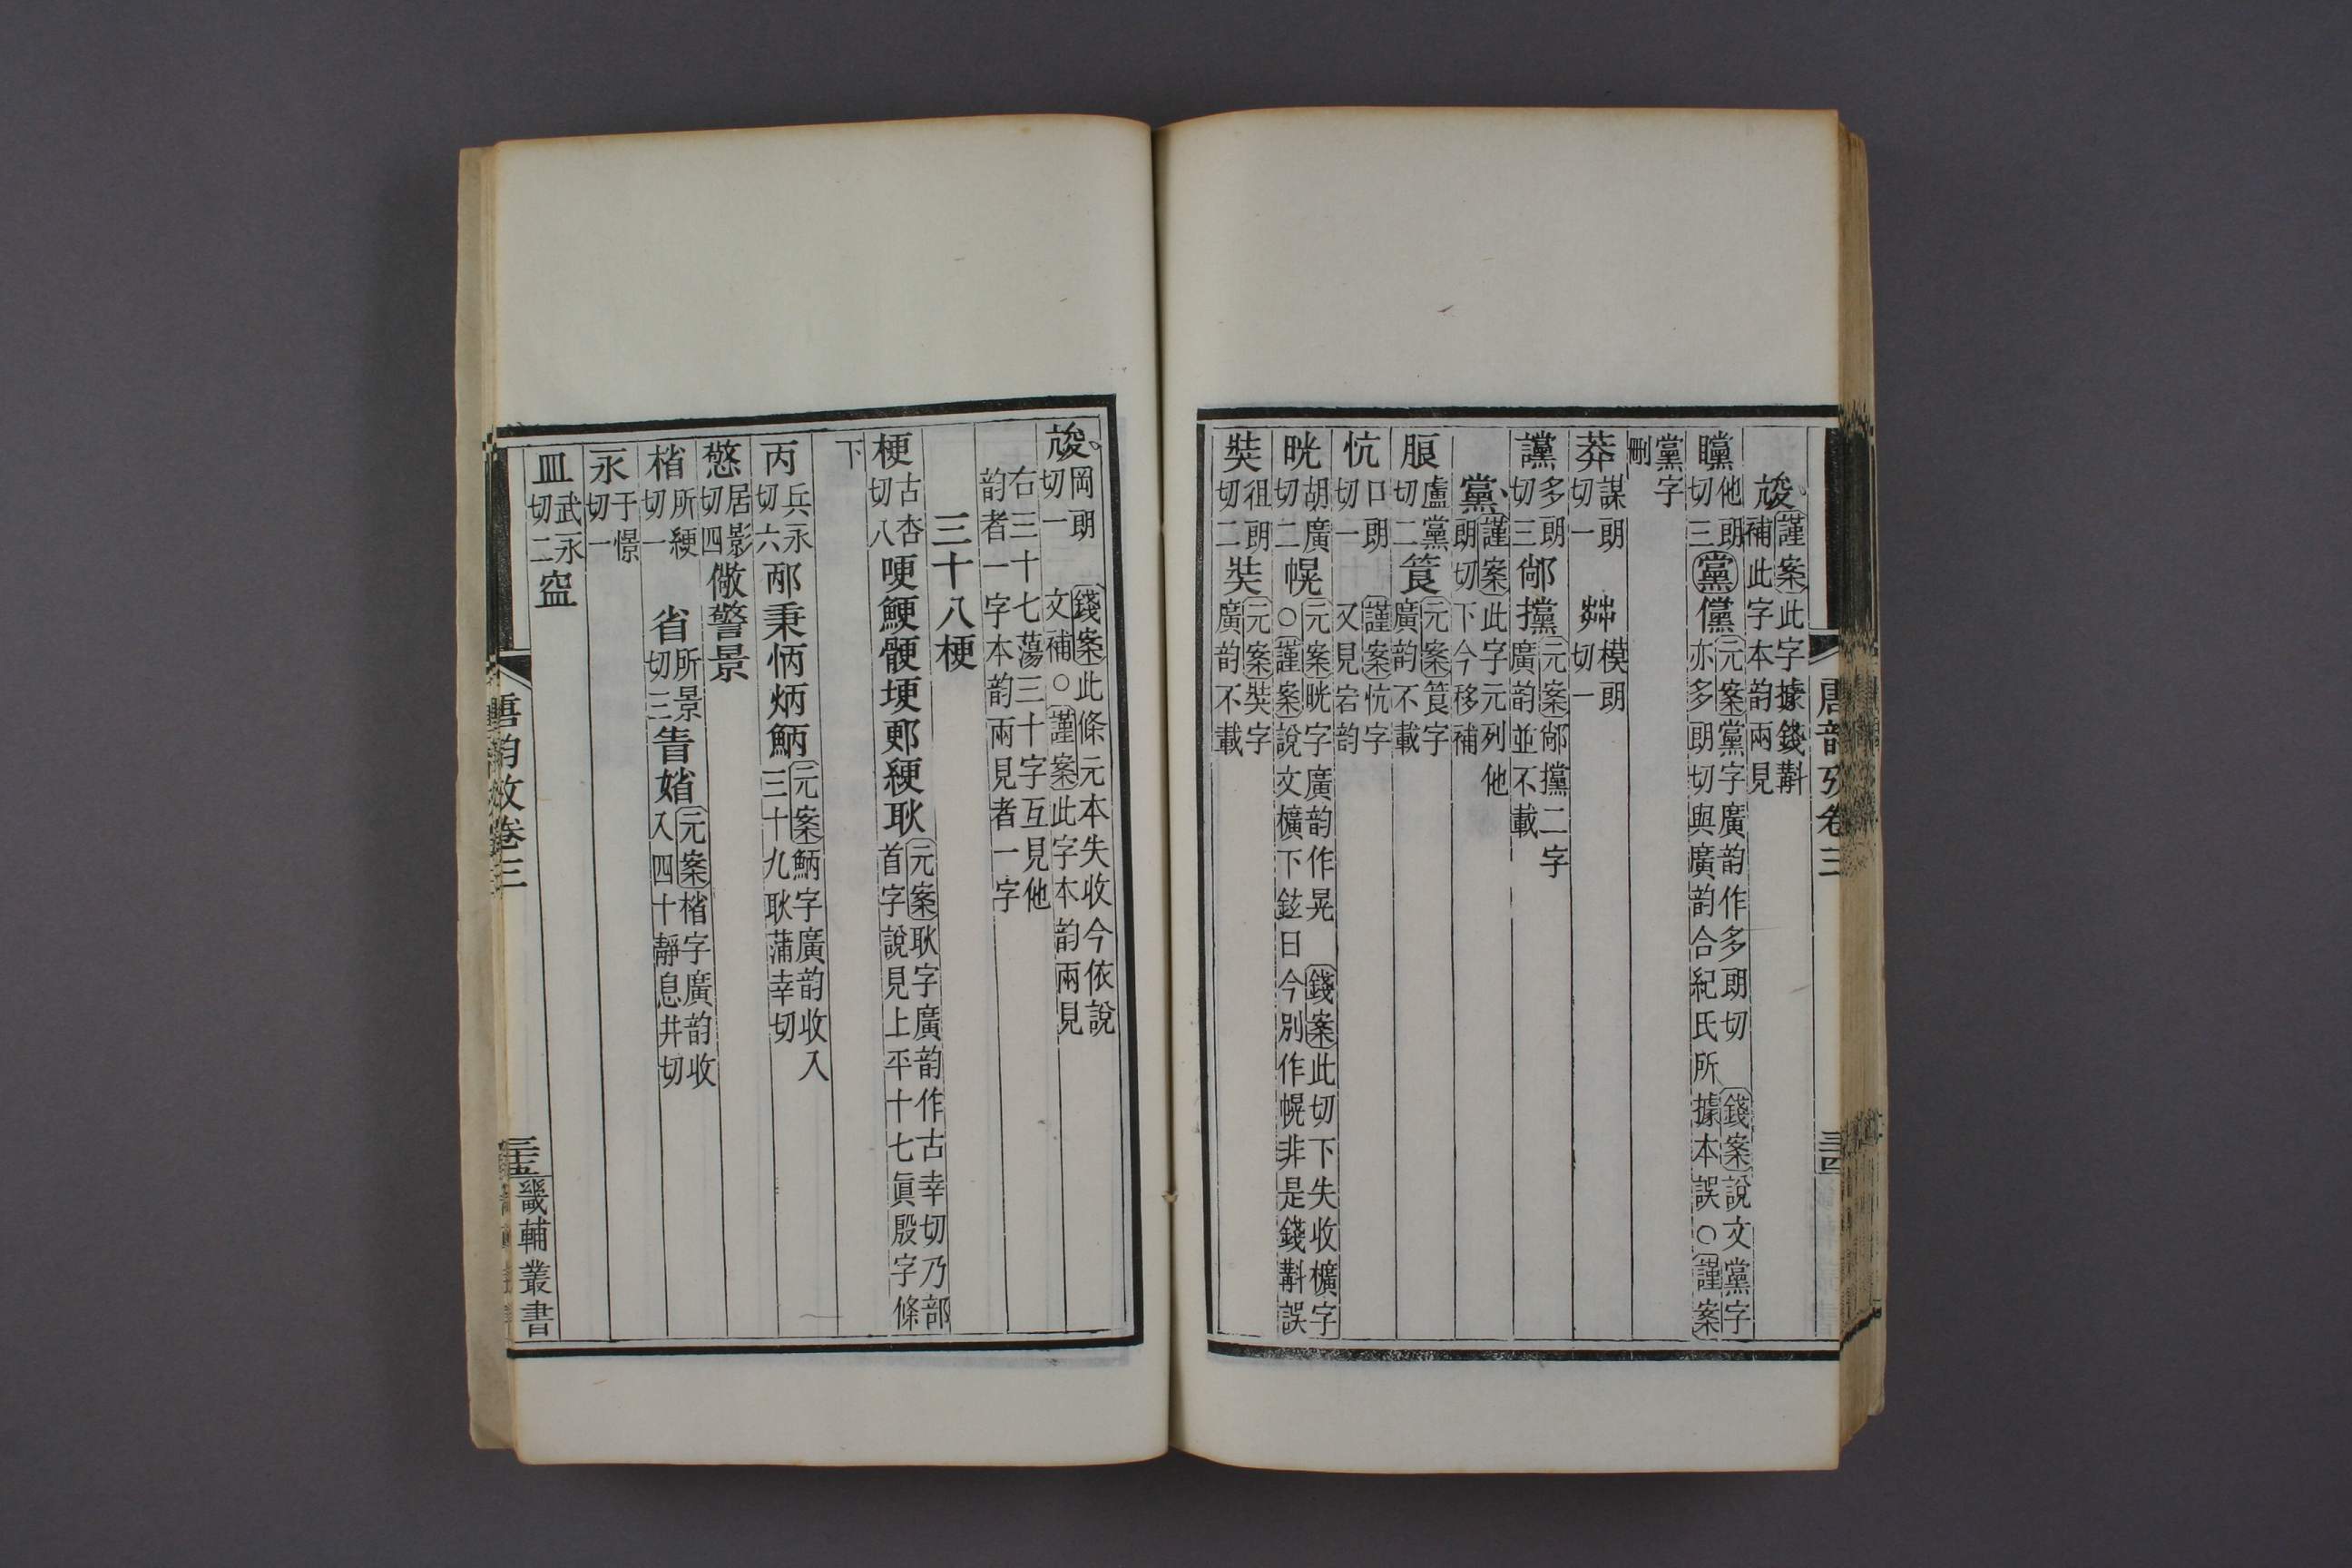 唐韵攷卷三 三十四
㚂謹案此字據錢斠補此字本韵兩見
曭他朗切三黨儻元案黨字廣韵作多朗切 錢案說文黨字亦多朗切與廣韵合紀氏所據本誤○謹案
黨字刪
莽謀朗切一 茻模朗切一
讜多朗切三鄺攩元案鄺攩二字廣韵並不載
黨謹案此字元列他朗切下今移補
朖盧黨切二筤元案筤字廣韵不載
忼口朗切一 謹案忼字又見宕韵
晄胡廣切二幌元案晄字廣韵作晃 錢案此切下失收櫎字○謹案說文櫎下鉉曰今別作幌非是錢斠誤
奘徂朗切二奘元案奘字廣韵不載
㚂岡朗切一 錢案此條元本失收今依說文補○謹案此字本韵兩見
右三十七蕩三十字互見他韵者一字本韵兩見者一字
三十八梗
梗古杏切八哽鯁骾埂郠綆耿元案耿字廣韵作古幸切乃部首字說見上平十七眞殷字條
下
丙兵永切六邴秉怲炳鮩元案鮩字廣韵收入三十九耿蒲幸切
憼居影切四儆警景
㮐所綆切一 省所景切三眚㛖元案㮐字廣韵收入四十靜息井切
永于憬切一
皿武永切二盌
唐韵攷卷三 三十五 畿輔叢書